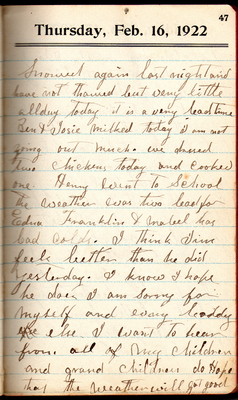 47
Thursday, Feb. 16, 1922
Snowed again last night and
have not thawed but very little
all day today it is a very bad time
Ben & Josie milked today I am not
going out much. we dressed
two chickens today and cooked
one. Henry went to School
the weather was two bad for
Edna Franklin & Mabel has
bad colds. I think Jim
feels better than he did
yesterday. I know I hope
he does I am sorry for
myself and every boddy
else I want to hear
from all of my children
and grand children do Hope
that the weather will get good